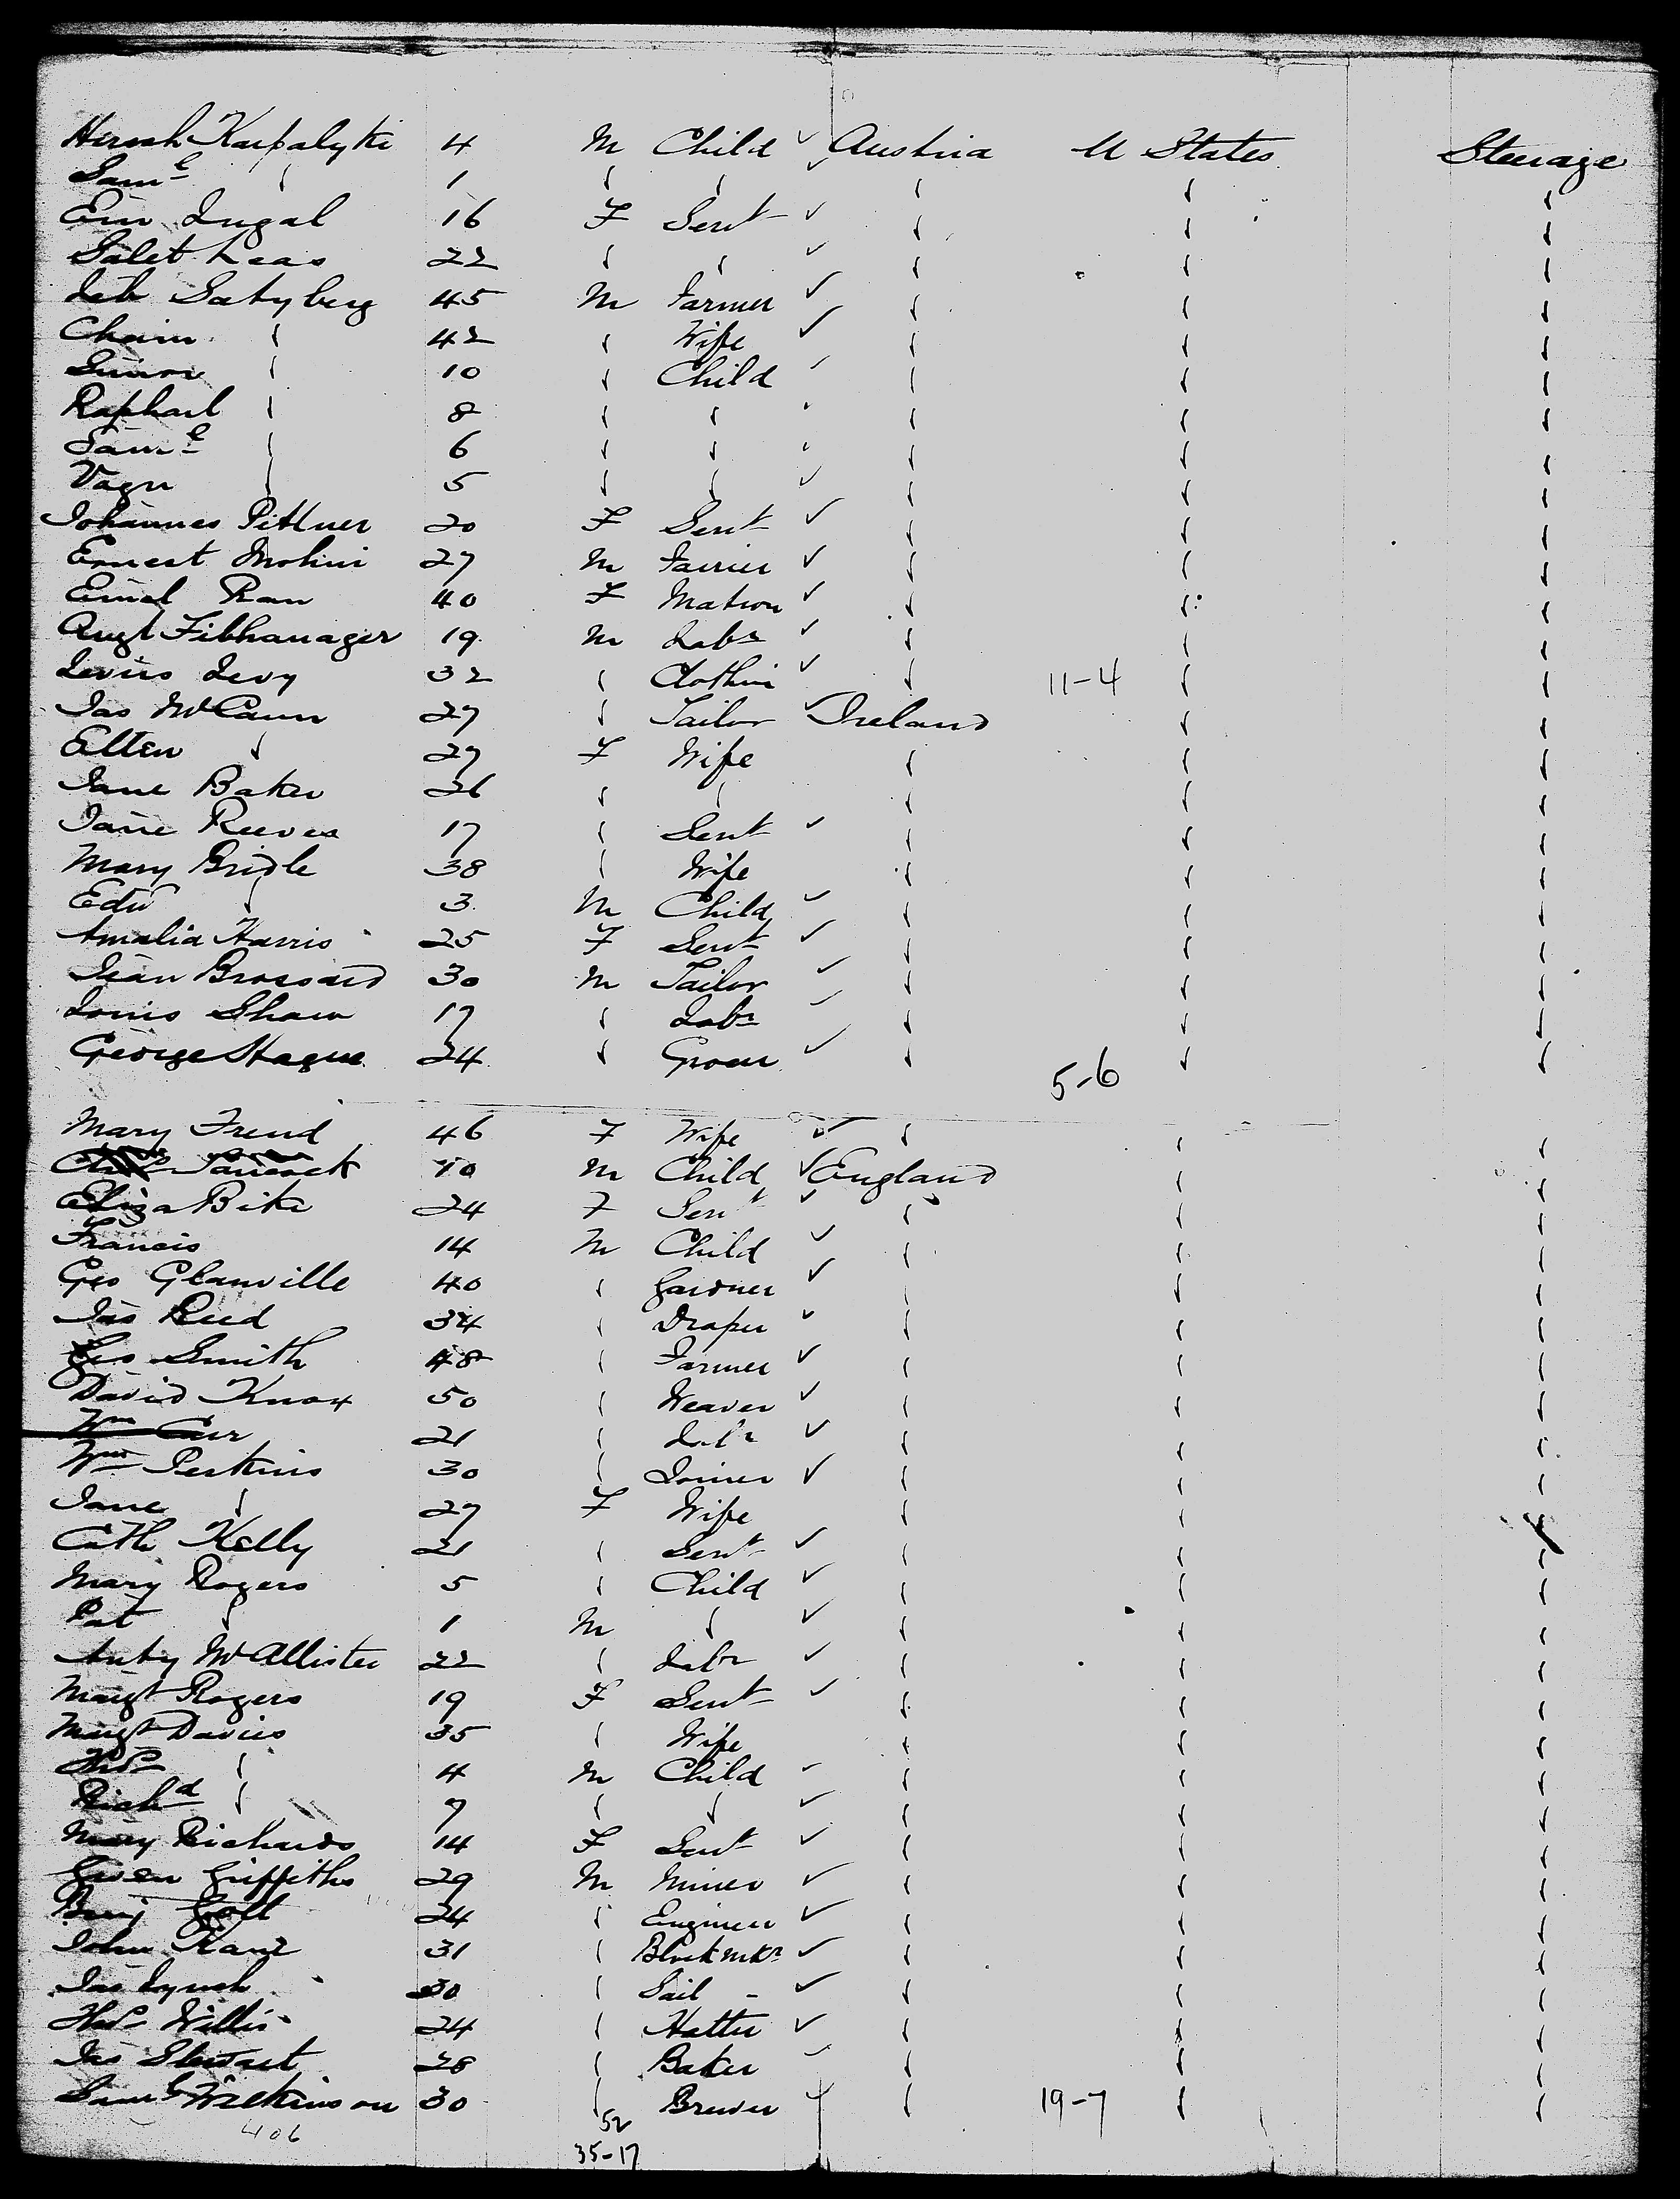 Hirsch Karpalyki 4 M Child ✓ Austria U States Steerage
Saml " 1 " " ✓ " " "
Em Lugal 16 F Servt ✓ " " "
Salet Leas 22 " " ✓ " " "
Leb Satyberg 45 M Farmer ✓ " " "
Chaim " 42 " Wife ✓ " " "
Simon " 10 " Child ✓ " " "
Raphael " 8 " " " " "
Saml " 6 " " " " "
" 5 " " ✓ " " "
Johannes Pittner 20 F Servt ✓ " " "
Ernest Mohini 27 M Farrier ✓ " " "
Emel Rau 40 F Matron ✓ " " "
Augt Fibhanager 19 M Labr ✓ " " "
Levis Levy 32 " Clothier ✓ " 11-4 " "
Jas McCann 27 " Tailor ✓ Ireland " "
Ellen " 27 F Wife " " "
Jane Baker 26 " " " " "
Jane Reeves 17 " Servt ✓ " " "
Mary Bridle 38 " Wife " " "
Edw " 3 M Child ✓ " " "
Amalia Harris 25 F Servt ✓ " " "
Jean Brossard 30 M Tailor ✓ " " "
Louis Shaw 17 " Labr ✓ " " "
George Hague 24 " Grocer ✓ " " "
5-6
Mary Freud 46 F Wife ✓ " " "
10 M Child ✓ England " "
Eliza Bike 24 F Servt ✓ " " "
Francis 14 M Child ✓ " " "
Geo Glanville 40 " Gardner ✓ " " "
Jas Reed 34 " Draper ✓ " " "
Geo Smith 48 " Farmer ✓ " " "
David Knox 50 " Weaver ✓ " " "
Wm Carr 21 " Labr ✓ " " "
Wm Perkins 30 " Joiner ✓ " " "
Jane " 27 F Wife " " "
Cath Kelly 21 " Servt ✓ " " "
Mary Rogers 5 " Child ✓ " " "
Pat " 1 M " ✓ " " "
Anty McAllister 22 " Labr ✓ " " "
Margt Rogers 19 F Servt ✓ " " "
Margt Davies 35 " Wife " " "
Thos " 4 M Child ✓ " " "
Richd " 7 " " ✓ " " "
Mary Richards 14 F Servt ✓ " " "
Gwen Griffiths 29 M Miner ✓ " " "
Benj Goft 24 " Engineer ✓ " " "
John Kane 31 " Block mkr ✓ " " "
Jas Lynch 30 " Sail - ✓ " " "
Thos Willis 24 " Hatter ✓ " " "
Jas Stewart 28 " Baker ✓ " " "
Saml Wilkinson 30 " Brewer ✓ " 19-7 " "
406 52
35-17